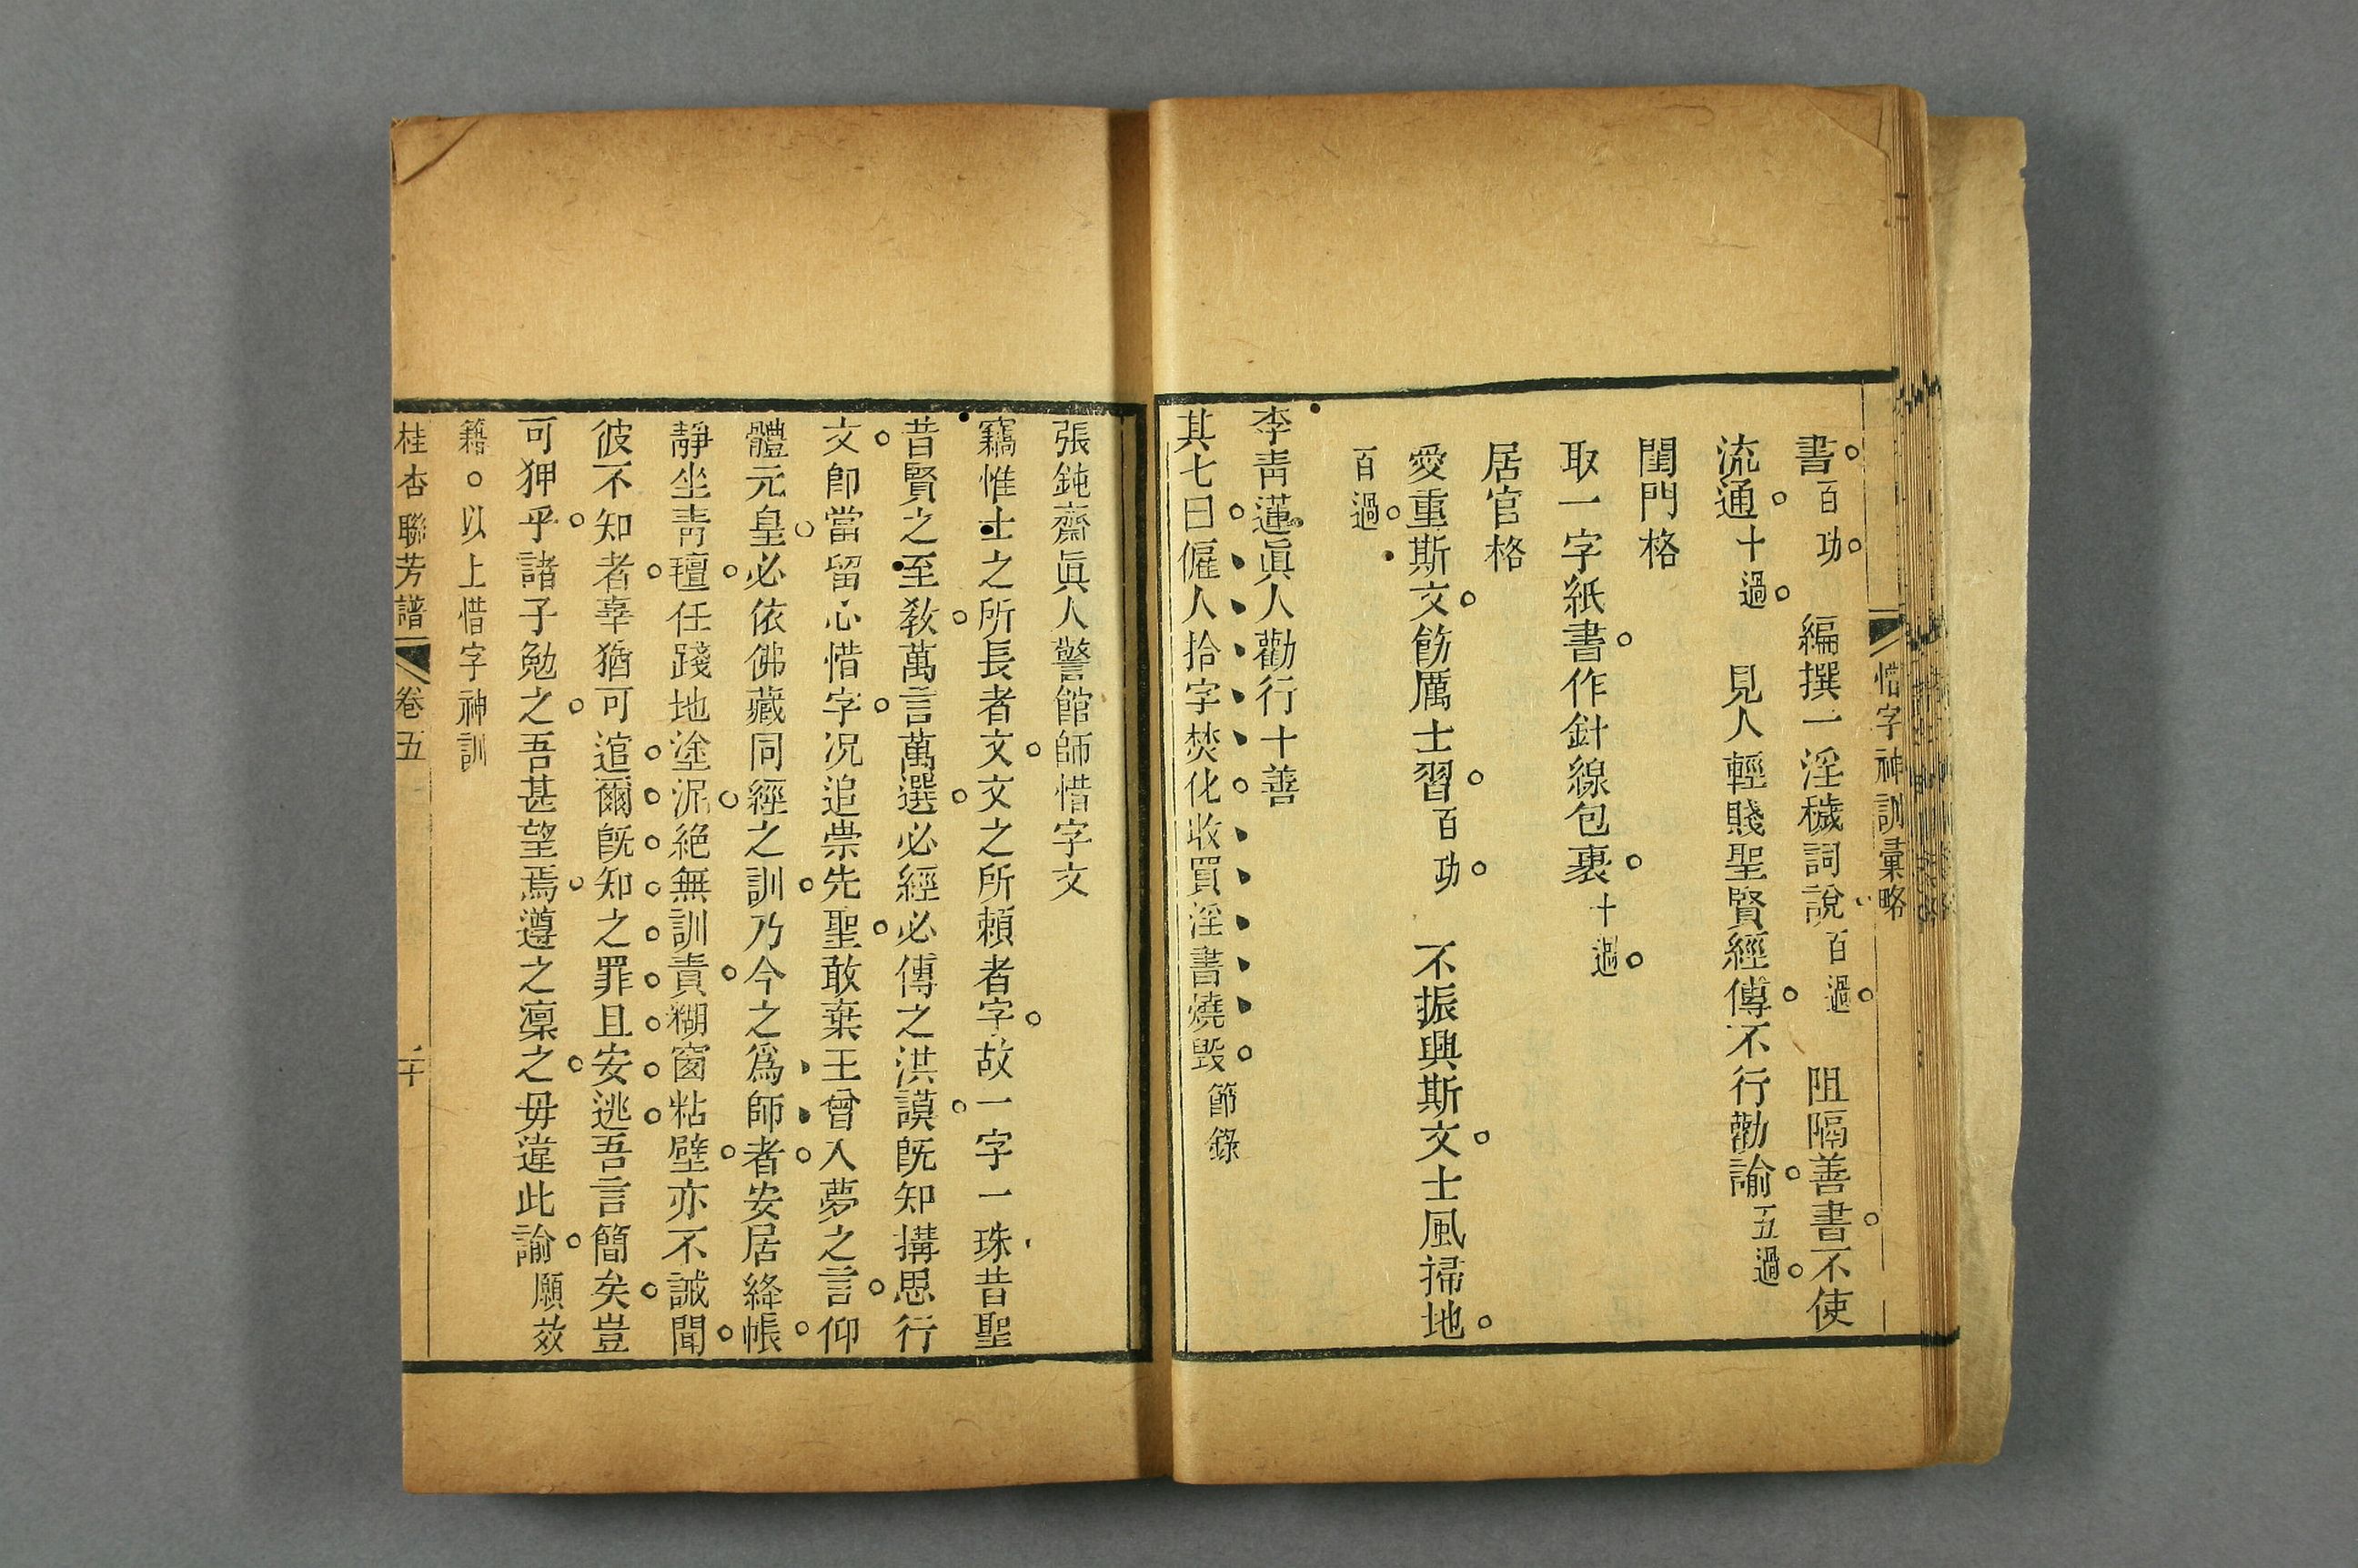 惜字神訓彙略
書。百功。 編撰一淫穢詞說百過。 阻隔善書。不使
流通。十過。 見人輕賤聖賢經傳。不行勸諭。五過。
閨門格
取一字紙書。作針線包裹。十過。
居官格
愛重斯文。飭厲士習。百功。 不振興斯文。士風掃地。
百過。
李青蓮眞人勸行十善
其七曰。僱人拾字焚化。收買淫書燒毀。節錄
張鈍齋眞人警館師惜字文
竊惟士之所長者文。文之所賴者字。故一字一珠昔聖
昔賢之至教。萬言萬選。必經必傳之洪謨。旣知搆思行
文。卽當留心惜字。况追崇先聖。敢棄王曾入夢之言。仰
體元皇。必依佛藏同經之訓。乃今之爲師者。安居絳帳。
靜坐靑氊。任踐地塗泥。絕無訓責。糊窗粘壁。亦不誡聞。
彼不知者。辜猶可逭。爾旣知之罪且安逃。吾言簡矣。豈
可狎乎。諸子勉之。吾甚望焉。遵之凜之。毋違此諭。願效
籍。○以上惜字神訓
桂杏聯芳譜 卷五 二十